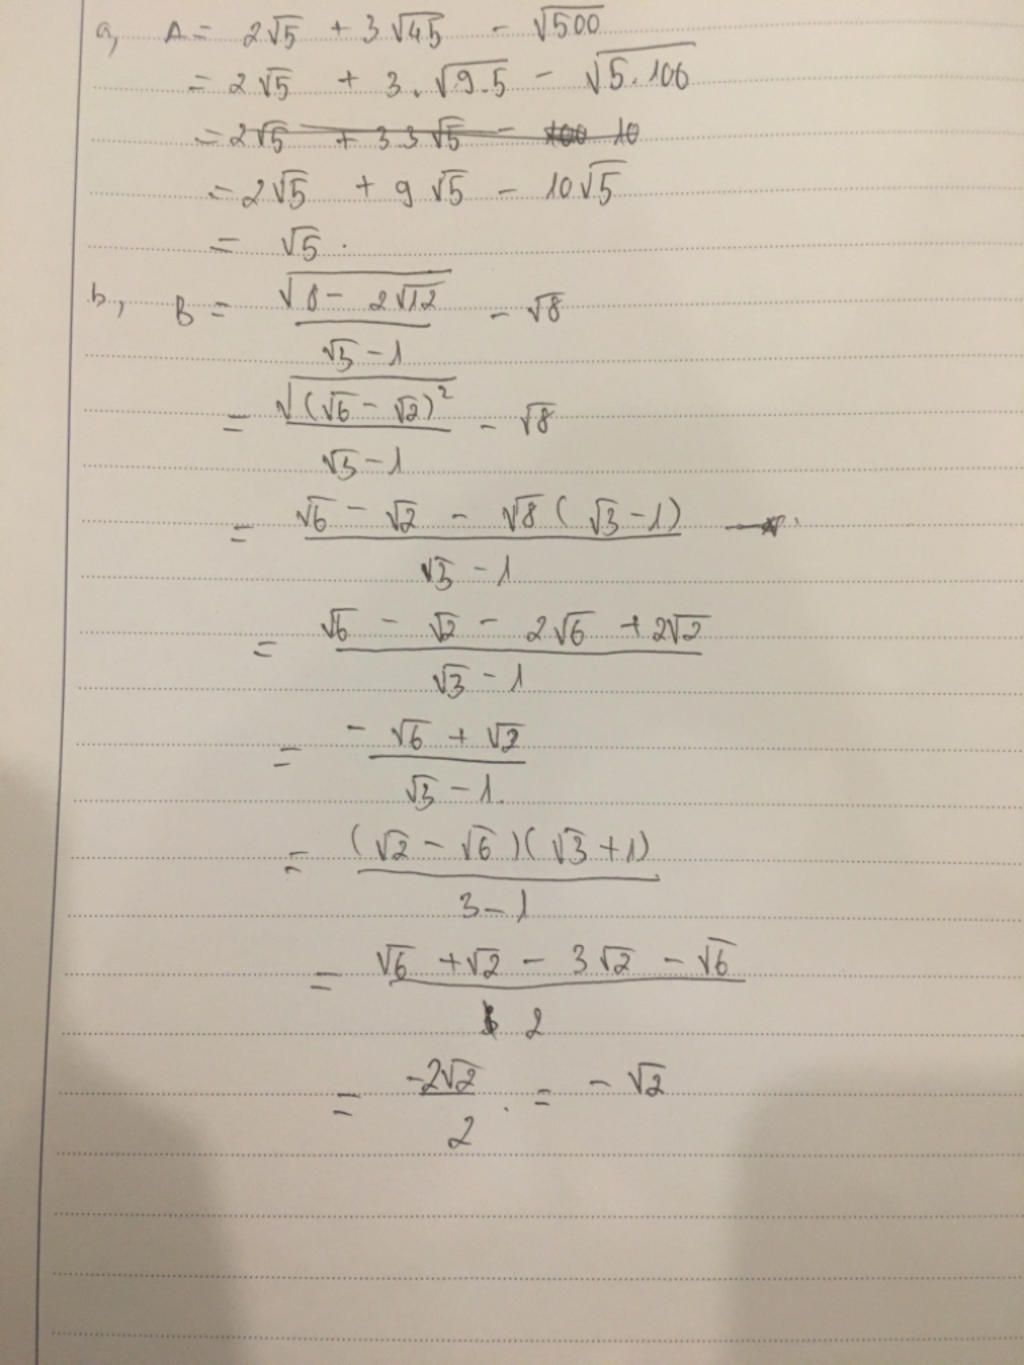 a, A = 2√5 + 3√45 - √500
= 2√5 + 3.√9.5 - √5.100
= 2√5 + 3 3√5 - 100 10
= 2√5 + 9√5 - 10√5
= √5.
b, B = √(8 - 2√12) / (√3 - 1) - √8
= √(√6 - √2)² / (√3 - 1) - √8
= (√6 - √2 - √8(√3 - 1)) / (√3 - 1)
= (√6 - √2 - 2√6 + 2√2) / (√3 - 1)
= (-√6 + √2) / (√3 - 1)
= (√2 - √6)(√3 + 1) / (3 - 1)
= (√6 + √2 - 3√2 - √6) / 2
= -2√2 / 2 = -√2